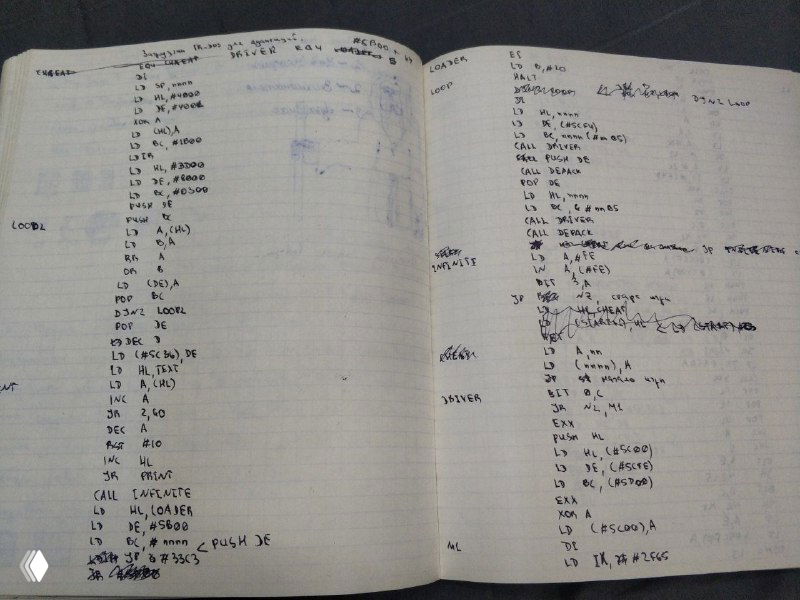 Загрузчик TR-DOS для адаптаций.
DRIVER EQU #5B00
DI
LD SP,nnnn
LD HL,#4000
LD DE,#4001
XOR A
LD (HL),A
LD BC,#1B00
LDIR
LD HL,#3D00
LD DE,#8000
LD BC,#0300
PUSH DE
PUSH BC
LOOP2 LD A,(HL)
LD B,A
RR A
OR B
LD (DE),A
POP BC
DJNZ LOOP2
POP DE
DEC D
LD (#5C36),DE
LD HL,TEXT
LD A,(HL)
INC A
JR Z,GO
DEC A
RST #10
INC HL
JR PRINT
CALL INFINITE
LD HL,LOADER
LD DE,#5B00
LD BC,#nnnn
PUSH DE
JP #33C3
LOADER EI
LD B,#20
LOOP HALT
DJNZ LOOP
DI
LD HL,nnnn
LD DE,(#5CF4)
LD BC,nnnn (#nn05)
CALL DRIVER
PUSH DE
CALL DEPACK
POP DE
LD HL,nnnn
LD BC,#nn05
CALL DRIVER
CALL DEPACK
INFINITE LD A,#FE
IN A,(#FE)
BIT 3,A
JP NZ, старт игры
LD HL,CHEAT
LD A,nn
LD (nnnn),A
JP начало игры
DRIVER BIT 0,C
JR NZ,M1
EXX
PUSH HL
LD HL,(#5C00)
LD DE,(#5CFE)
LD BC,(#5D00)
EXX
XOR A
LD (#5C00),A
M1 DI
LD IX,#2F65